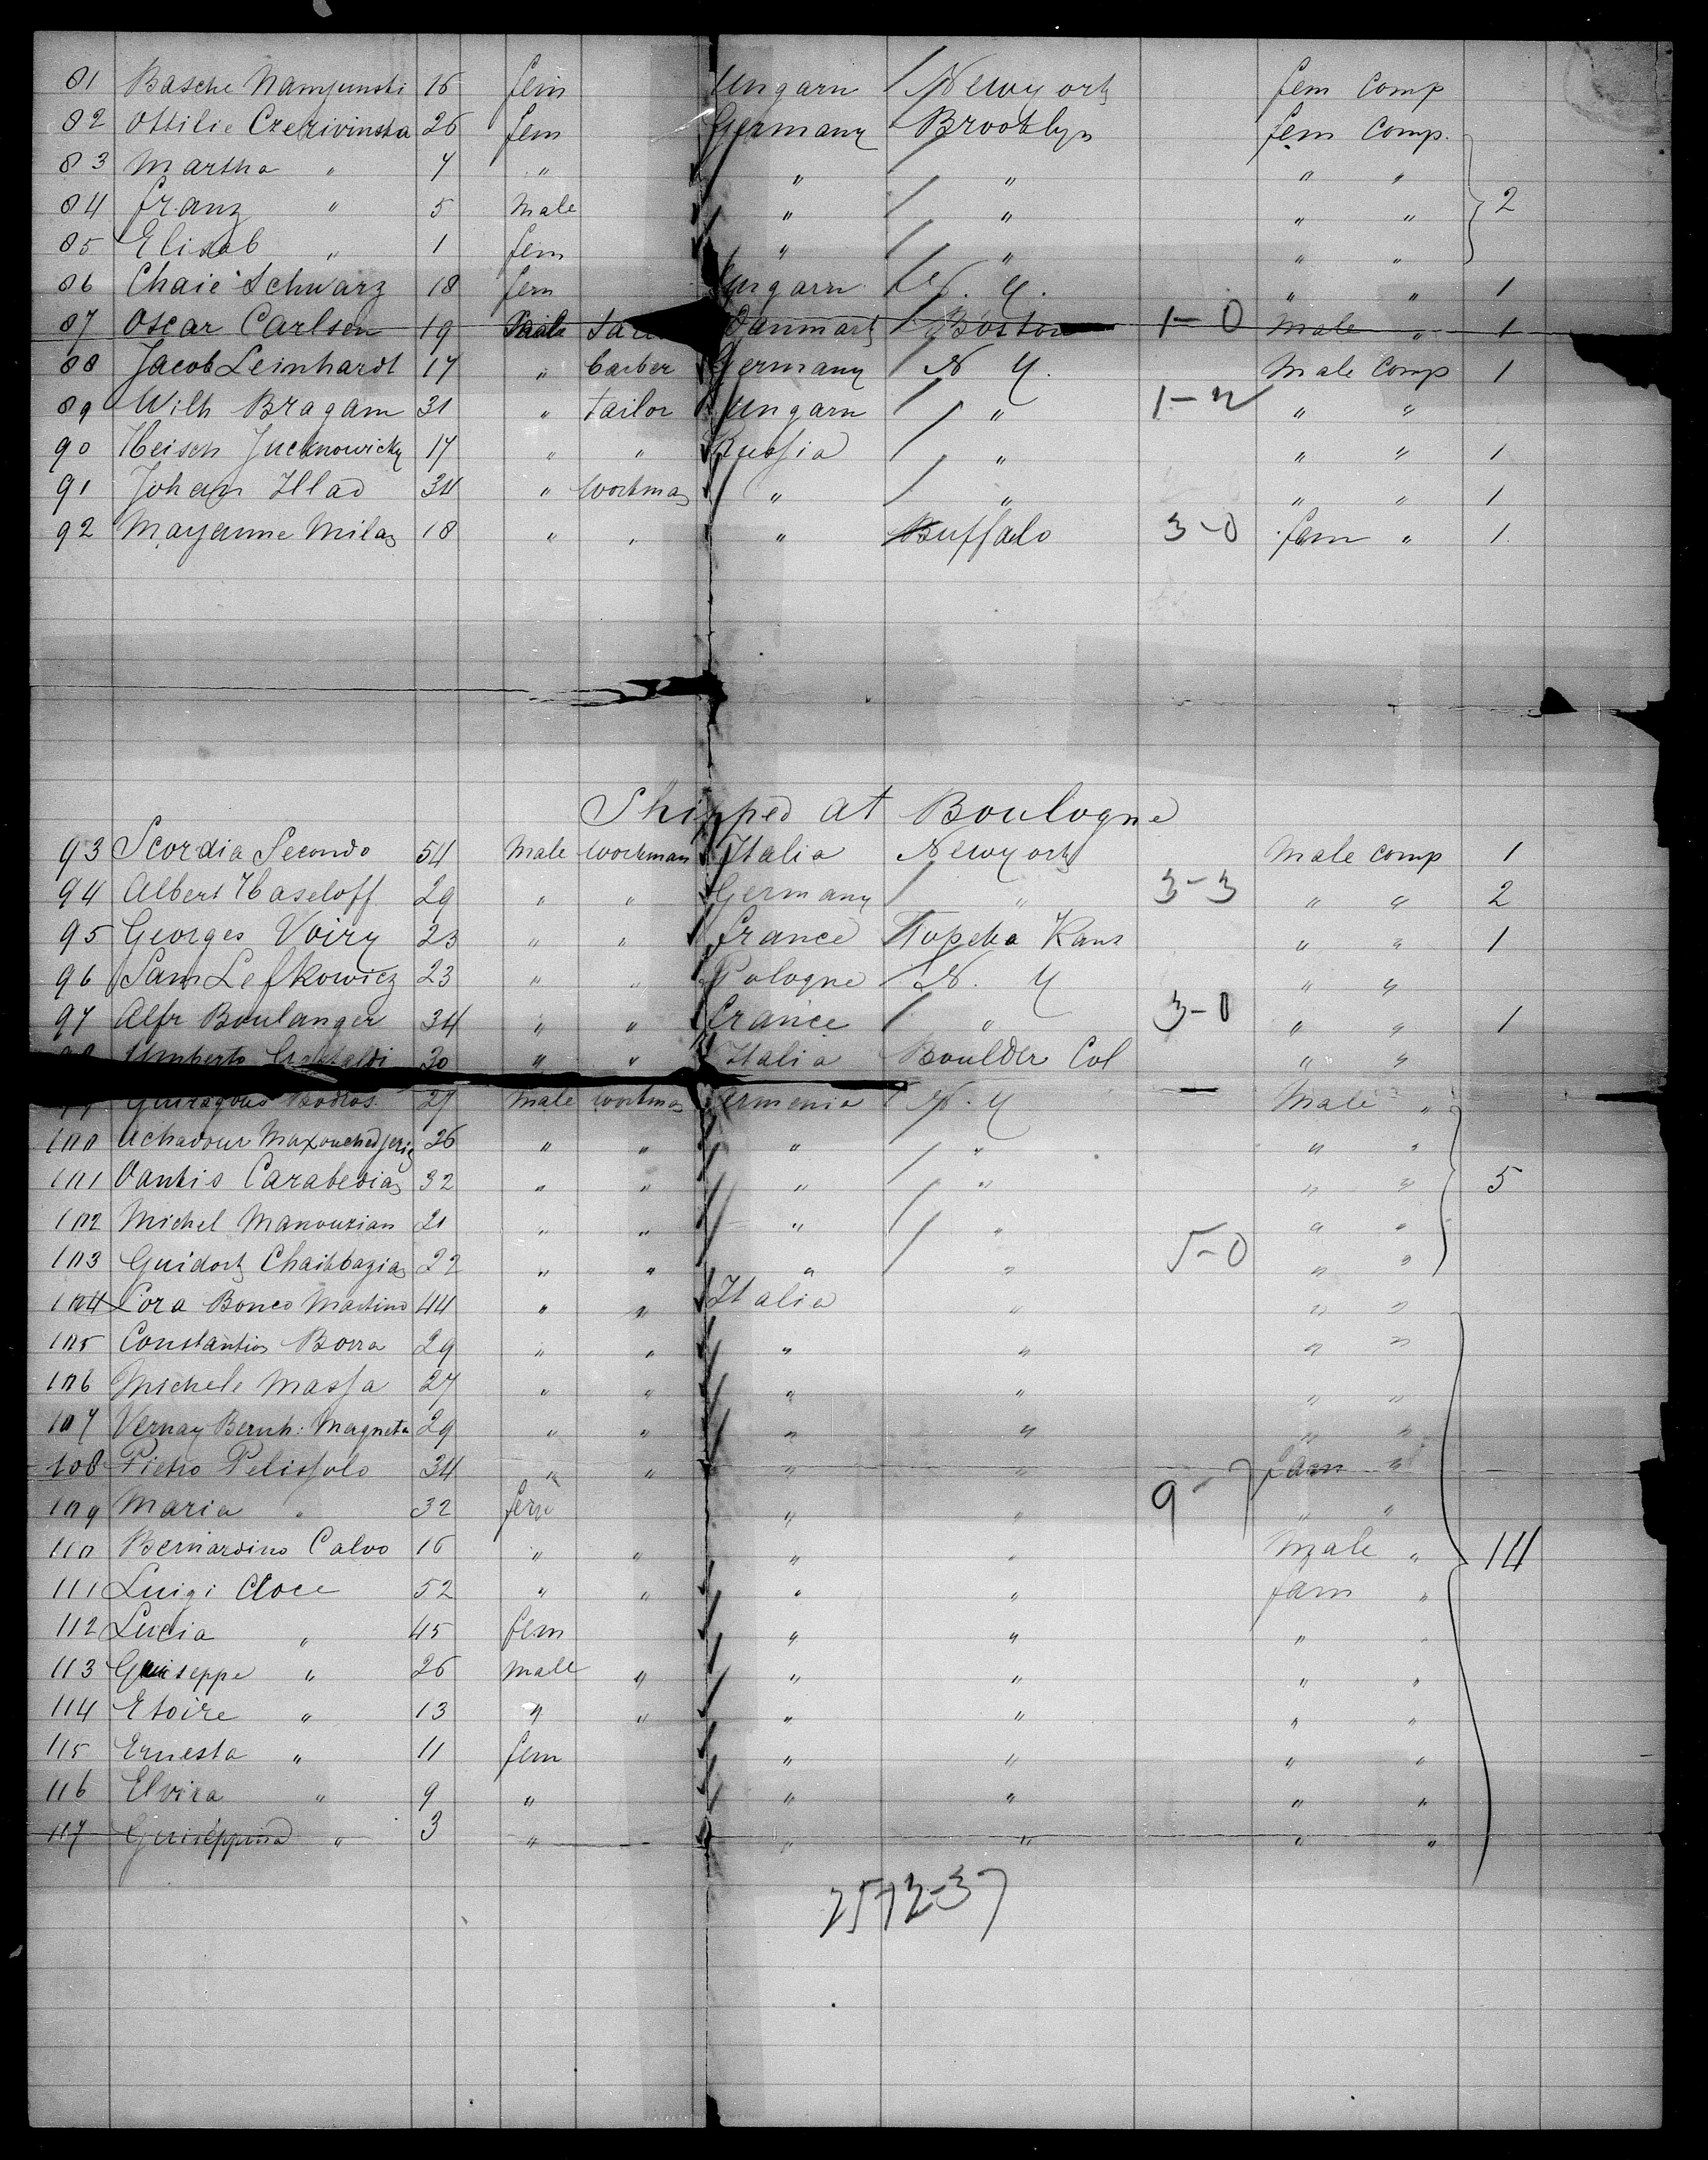 81 Basche Namjunski 16 fem Ungarn Newyork fem Comp
82 Ottilie Czerivinska 26 fem Germany Brooklyn fem Comp.
83 Martha " 7 " " " " "
84 Franz " 5 Male " " " " 2
85 Elisab " 1 fem " " " "
86 Chaie Schwarz 18 fem Ungarn N. Y. " " 1
87 Oscar Carlsen 19 Male Danmark Boston 1-0 Male " 1
88 Jacob Leinhardt 17 " barber Germany N Y. Male Comp 1
89 Wilh Bragam 31 " tailor Ungarn " 1-2 " "
90 Heisch Jucknowicky 17 " " Russia " " " 1
91 Johan Illad 34 " Workman " " " " 1
92 Mayanne Milas 18 " " " Buffalo 3-0 fam " 1
Shipped at Boulogne
93 Scordia Secondo 54 Male Workman Italia Newyork Male Comp 1
94 Albert Haseloff 29 " " Germany " 3-3 " " 2
95 Georges Voiry 23 " " France Topeka Kans " " 1
96 Sam Lefkowicz 23 " " Pologne N. Y " "
97 Alfr Boulanger 34 " " France " 3-0 " " 1
98 Umberto 30 " " Italia Boulder Col " "
99 Bodros 27 Male Workman Armenia N. Y Male "
100 Achadour 26 " " " " " "
101 Vankis Carabedian 32 " " " " " " 5
102 Michel Manourian 21 " " " " " "
103 Guidork Chaihbazian 22 " " " " 5-0 " "
104 Lora Bonco Martino 44 " " Italia " " "
105 Constantino Borra 29 " " " " " "
106 Michele Massa 27 " " " " " "
107 Vernay Bernh: Magneta 29 " " " " " "
108 Pietro Pelissolo 34 " " " " fam "
109 Maria " 32 fem " " 9-7 " "
110 Bernardino Calvo 16 " " " " Male " 14
111 Luigi Cloce 52 " " " " fam "
112 Lucia " 45 fem " " " "
113 Guiseppe " 26 male " " " " "
114 Etoire " 13 " " " " " "
115 Ernesta " 11 fem " " " "
116 Elvira " 9 " " " " "
117 Guiseppina " 3 " " " " "
25-12-37